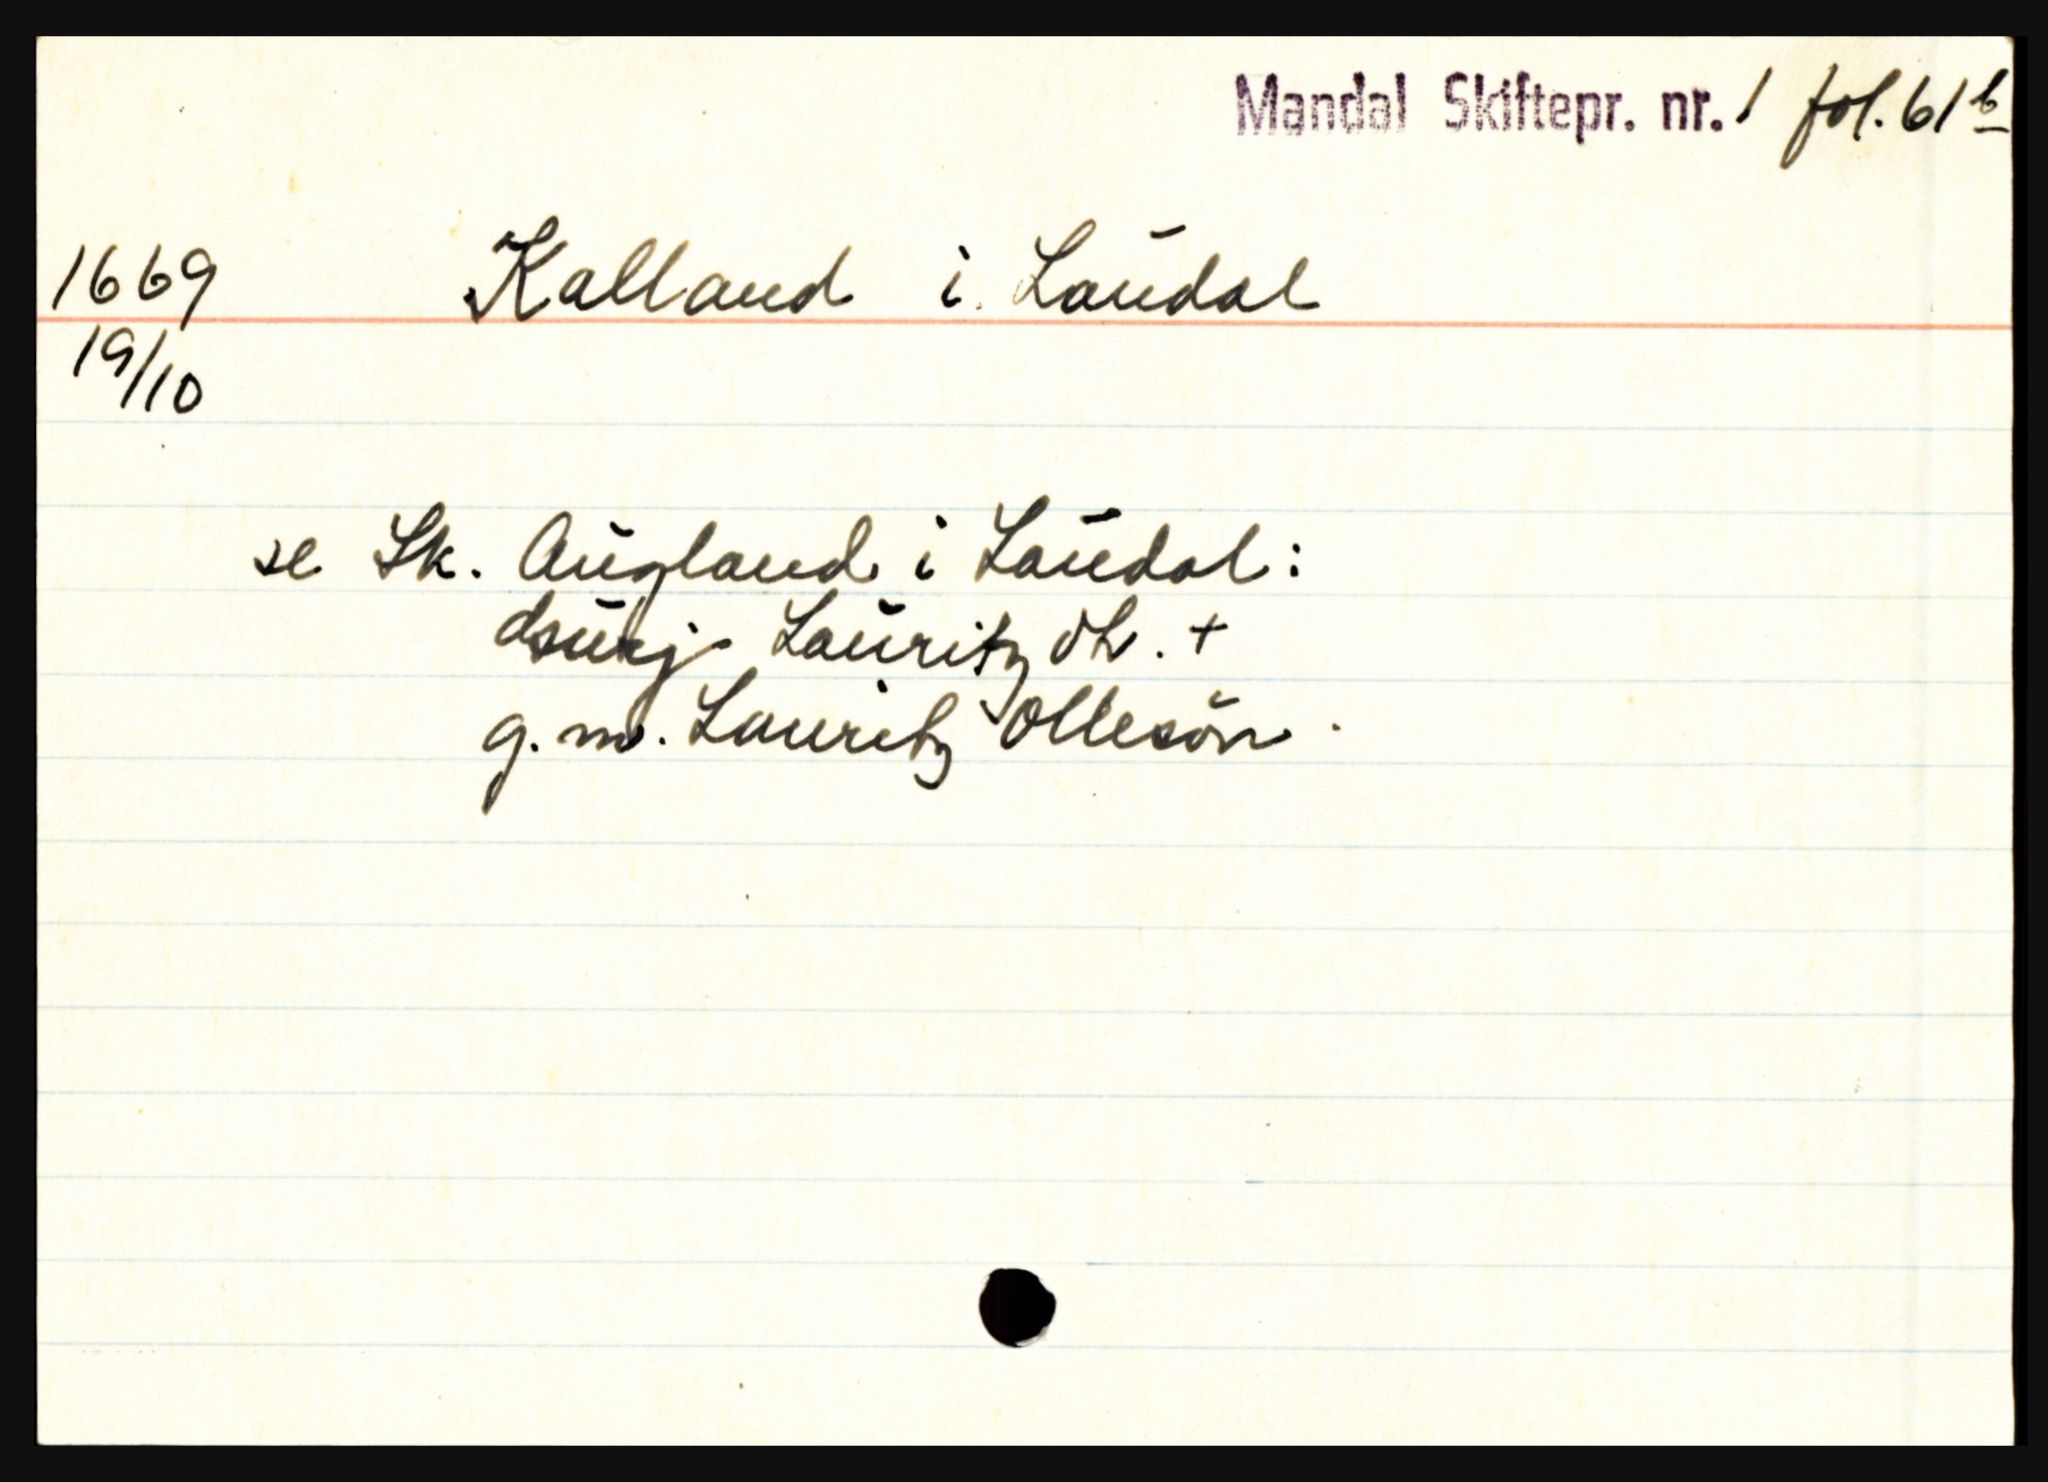 Mandal Skiftepr. nr. 1 fol. 61 b
1669 Kalland i Laudal
19/10
se Sk. Augland i Laudal:
Lauritz dtr. +
g. m. Lauritz Ollesön.